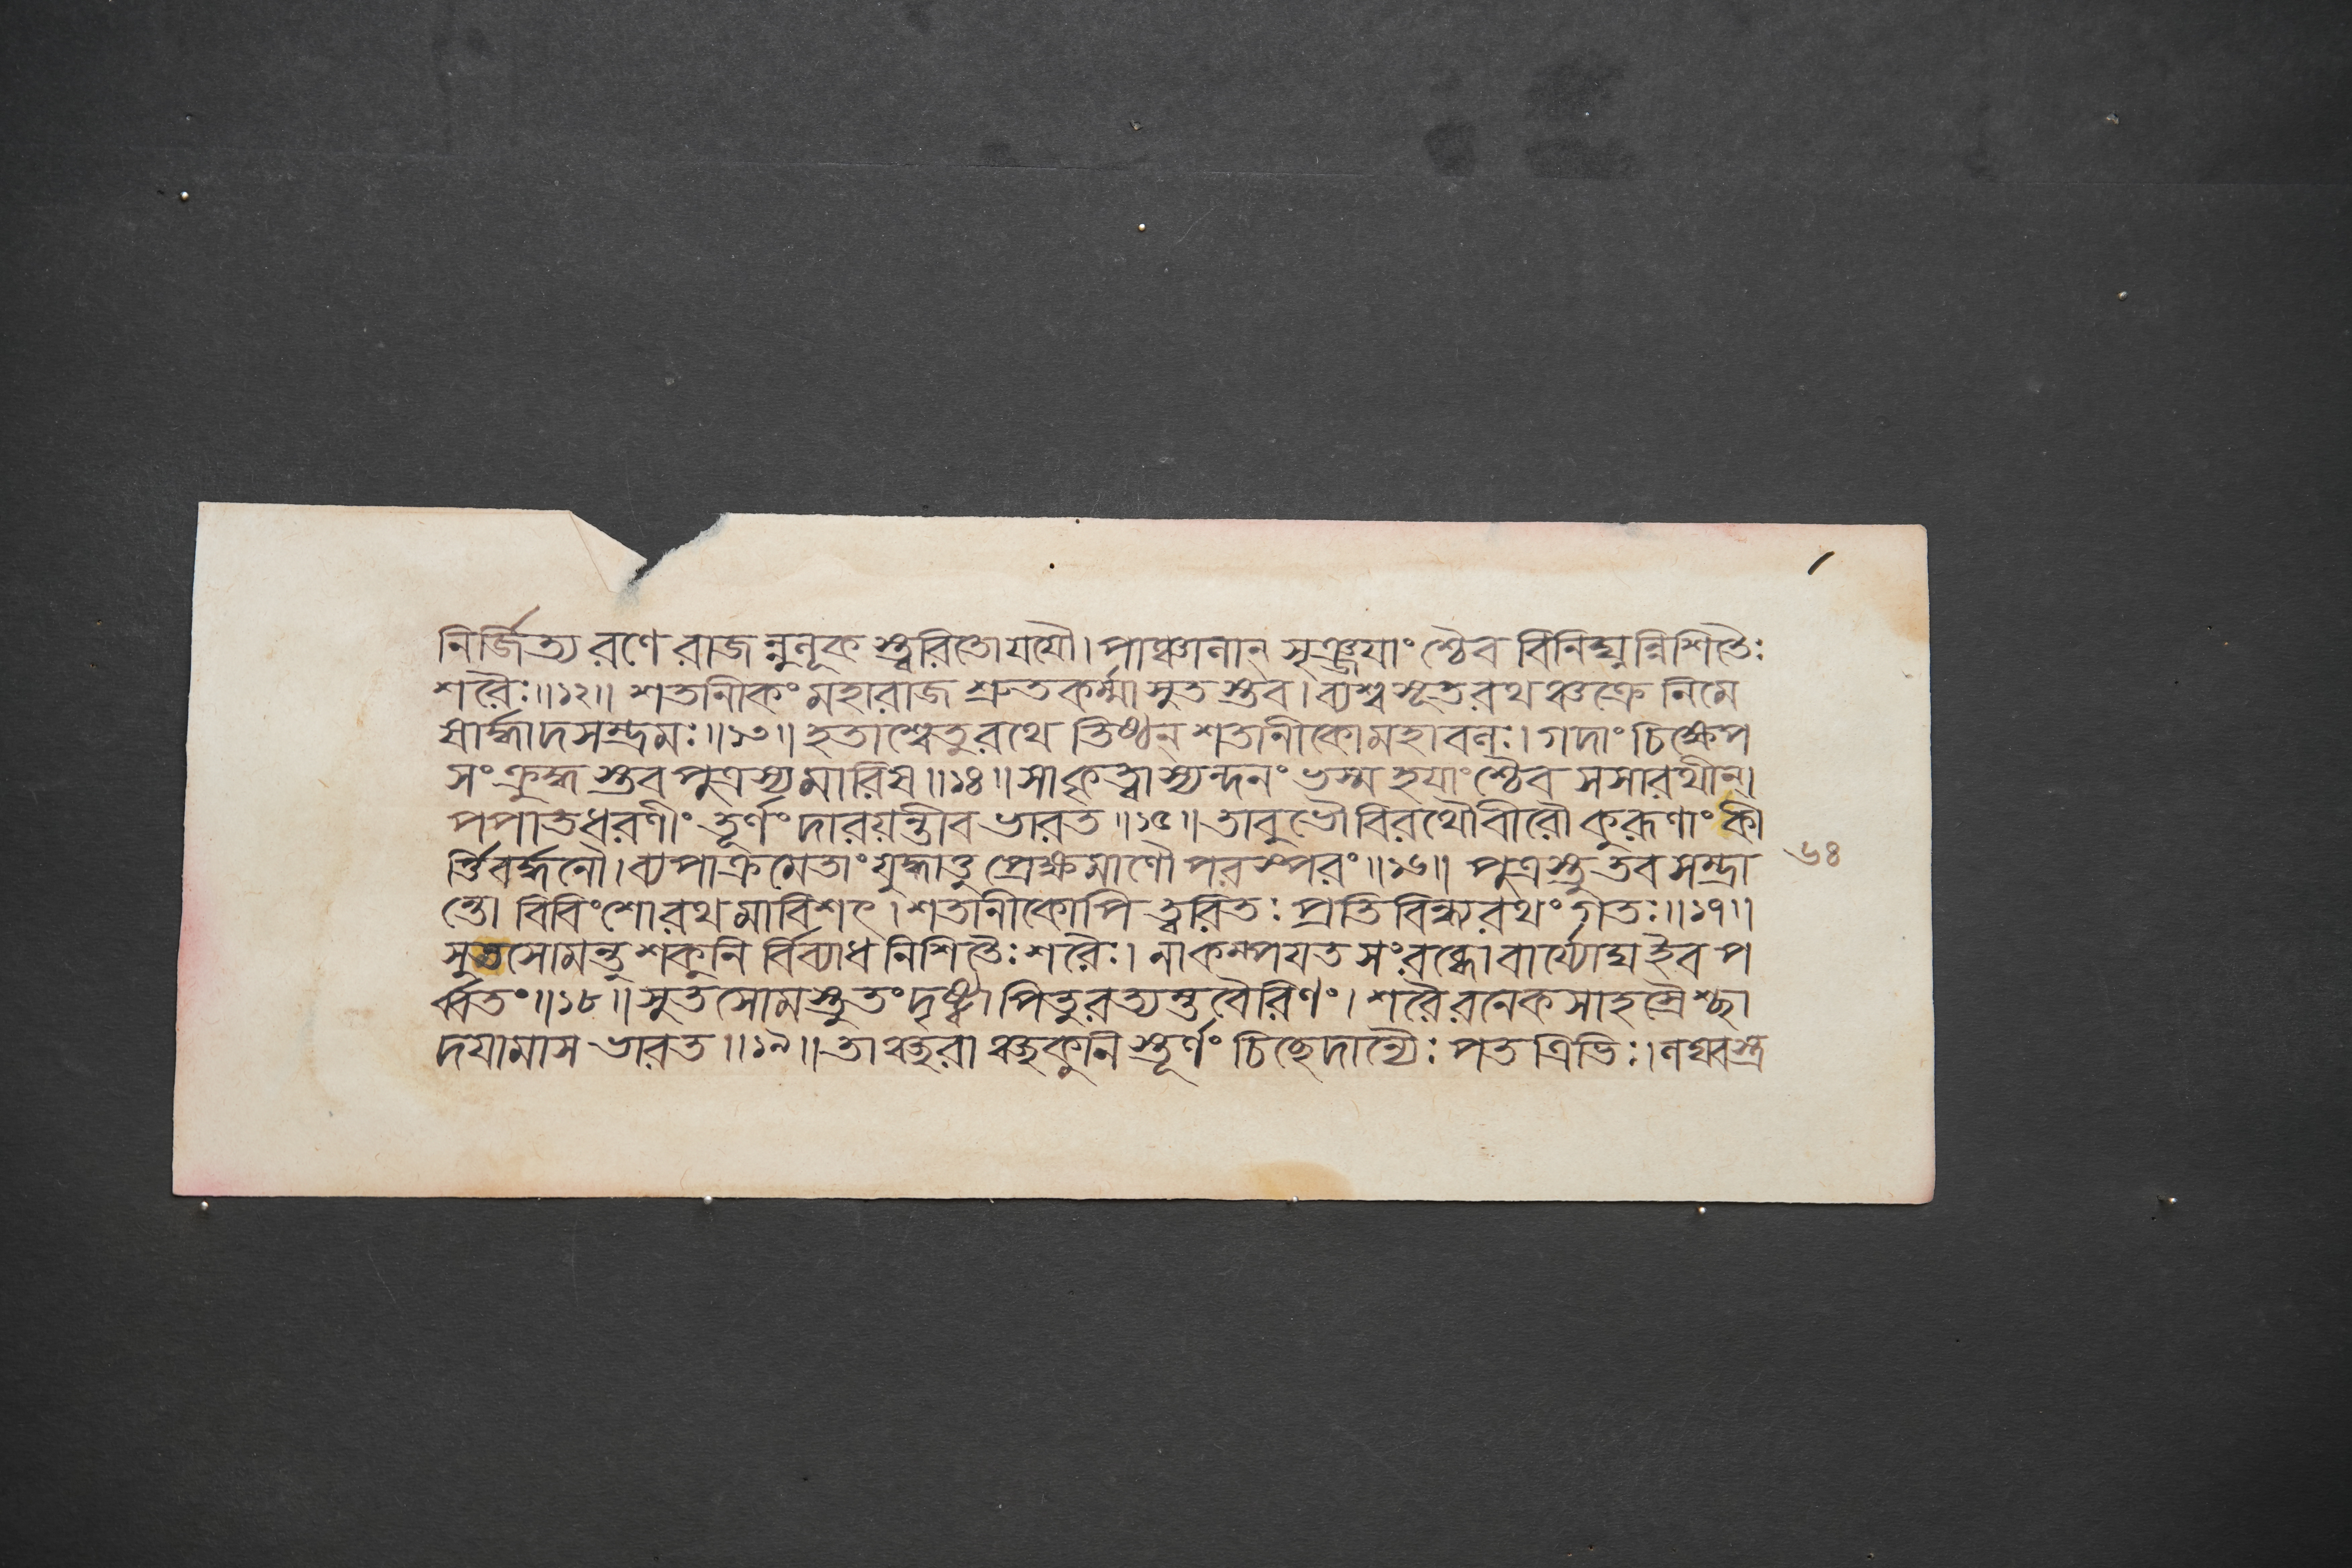 নির্জিত্য রণে রাজ ন্নুলূক স্ত্বরিতো যযৌ। পাঞ্চালান্ সৃঞ্জয়াংশ্চৈব বিনিঘ্নন্নিশিতৈঃ
শরৈঃ॥১২॥ শতানীকং মহারাজ শ্রুতকর্ম্মা সুত স্তব। ব্যশ্ব সূত রথ ঞ্চক্রে নিমে
ষার্দ্ধাদসম্ভ্রমঃ॥১৩॥ হতাশ্বেতু রথে তিষ্ঠন্ শতানীকো মহাবলঃ। গদাং চিক্ষেপ
সংক্রুদ্ধ স্তব পুত্রস্য মারিষ॥১৪॥ সা কৃত্বা স্যন্দনং ভস্ম হয়াংশ্চৈব সসারথীন্।
পপাত ধরণীং তূর্ণং দারয়ন্তীব ভারত॥১৫॥ তাবুভৌ বিরথৌ বীরৌ কুরূণাং কী
র্ত্তিবর্দ্ধনৌ। ব্যপাক্রমেতাং যুদ্ধাত্তু প্রেক্ষমাণৌ পরস্পরং॥১৬॥ পুত্রস্তু তব সম্ভ্রা
ন্তো বিবিংশো রথমাবিশৎ। শতানীকোপি ত্বরিতঃ প্রতিবিন্ধ্যরথং গতঃ॥১৭॥
সুতসোমন্তু শকুনি র্বিব্যাধ নিশিতৈঃ শরৈঃ। নাকম্পযত সংরব্ধো বার্য্যোঘ ইব প
র্ব্বতং॥১৮॥ সুতসোমস্তু তং দৃষ্ট্বা পিতুরত্যন্তবৈরিণং। শরৈরনেকসাহস্রৈশ্ছা
দযামাস ভারত॥১৯॥ তাঞ্ছরাঞ্ছকুনি স্তূর্ণং চিচ্ছেদান্যৈঃ পতত্রিভিঃ। লঘ্বস্ত্র
৬৪